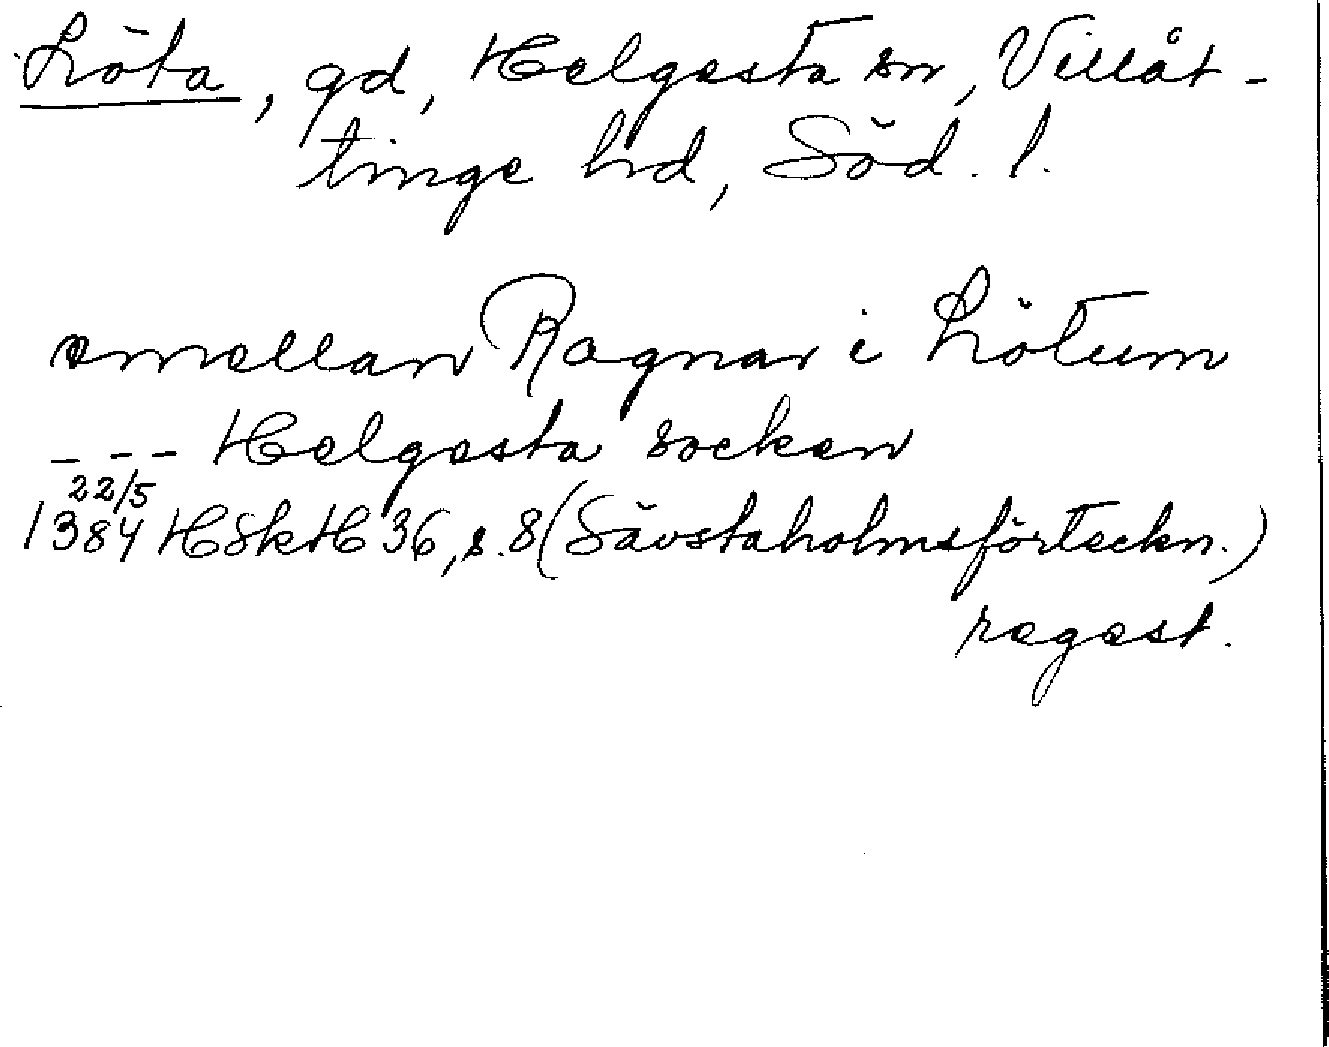 Löta, gd, Helgesta sn, Villåt-
tinge hd, Söd. l.
emellan Ragnar i Lötum
--- Helgesta socken
22/5
1384 HSkH 36, s. 8 (Sävstaholmsförteckn.)
regest.